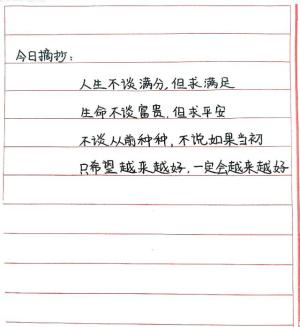 今日摘抄:
人生不谈满分,但求满足
生命不谈富贵,但求平安
不谈从前种种,不说如果当初
只希望越来越好,一定会越来越好